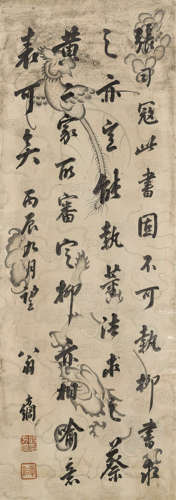 張司寇此書固不可執柳書求
之亦豈能執董法求之蔡
黄家所審定柳亦相喻意
表可矣 丙辰九月望 翁